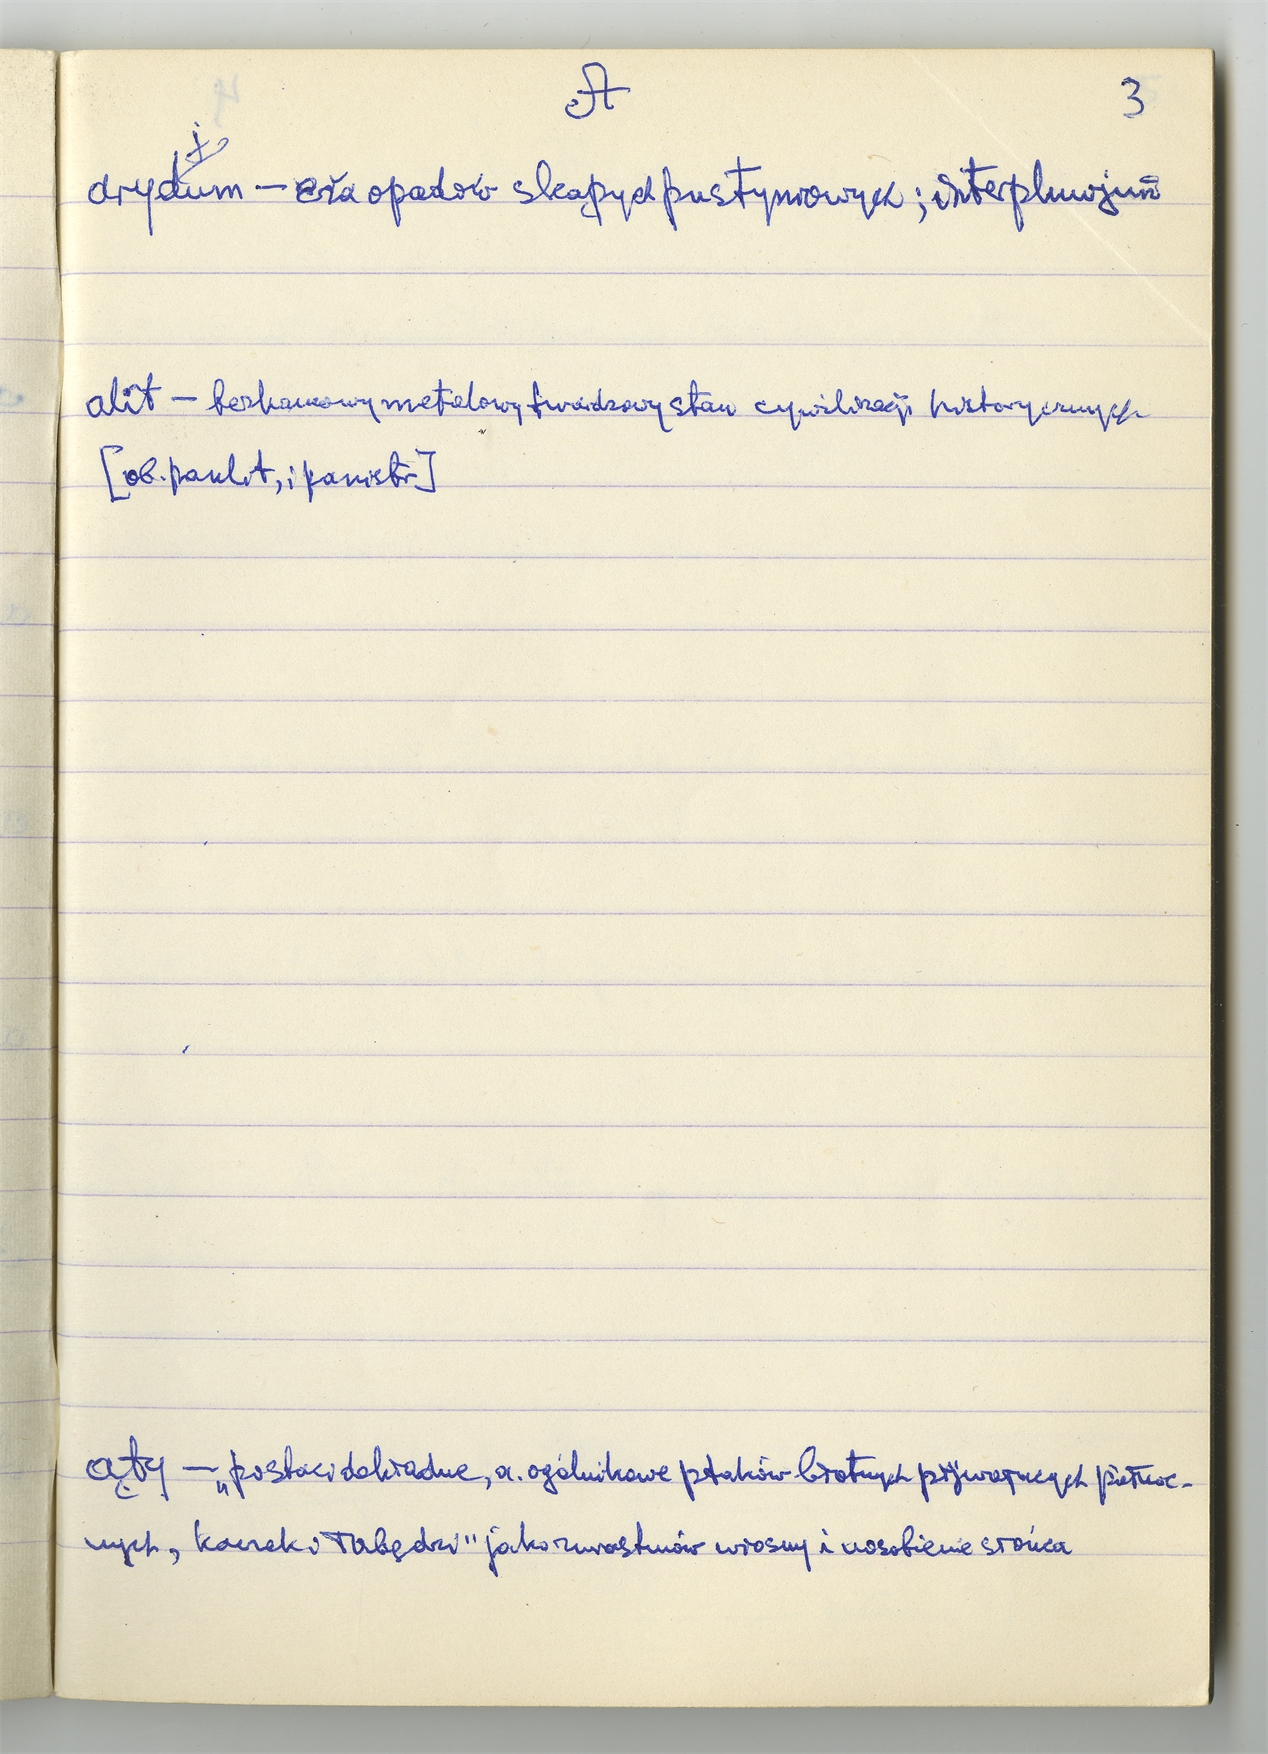 A 3
arydjum — era opadów skąpych pustyniowych; interpluwjum
alit — bezkamowy metalowy twardzowy stan cywilizacji historycznych
[ob. paulit, i panistr]
ąty — „postaci dokładne, a. ogólnikowe ptaków błotnych północ-
nych, kaczek i łabędzi" jako zwiastunów wiosny i uosobienie słońca